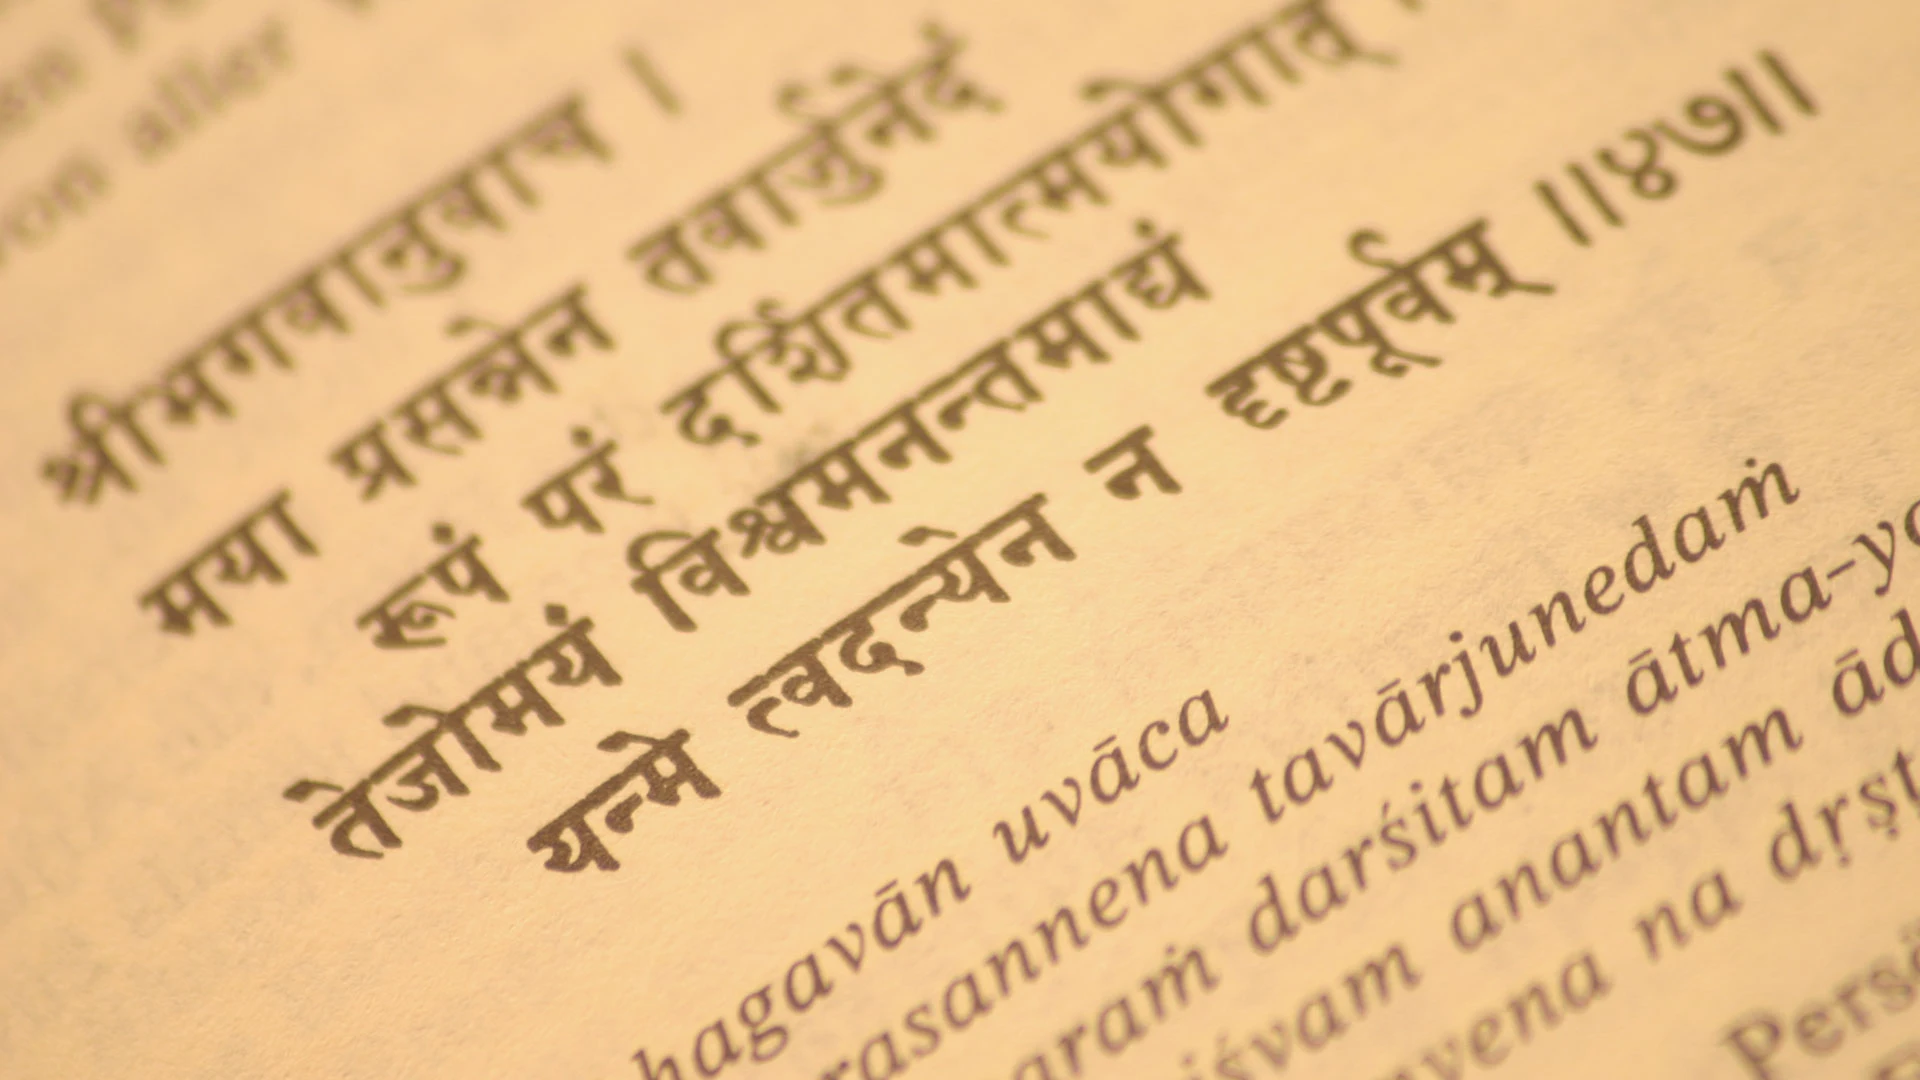 von aller
श्रीभगवानुवाच ।
मया प्रसन्नेन तवार्जुनेदं
रूपं परं दर्शितमात्मयोगात् ।
तेजोमयं विश्वमनन्तमाद्यं
यन्मे त्वदन्येन न दृष्टपूर्वम् ॥४७॥
hagavān uvāca
rasannena tavārjunedaṁ
araṁ darśitam ātma-yo
iśvam anantam ād
nyena na dṛṣṭ
Persö